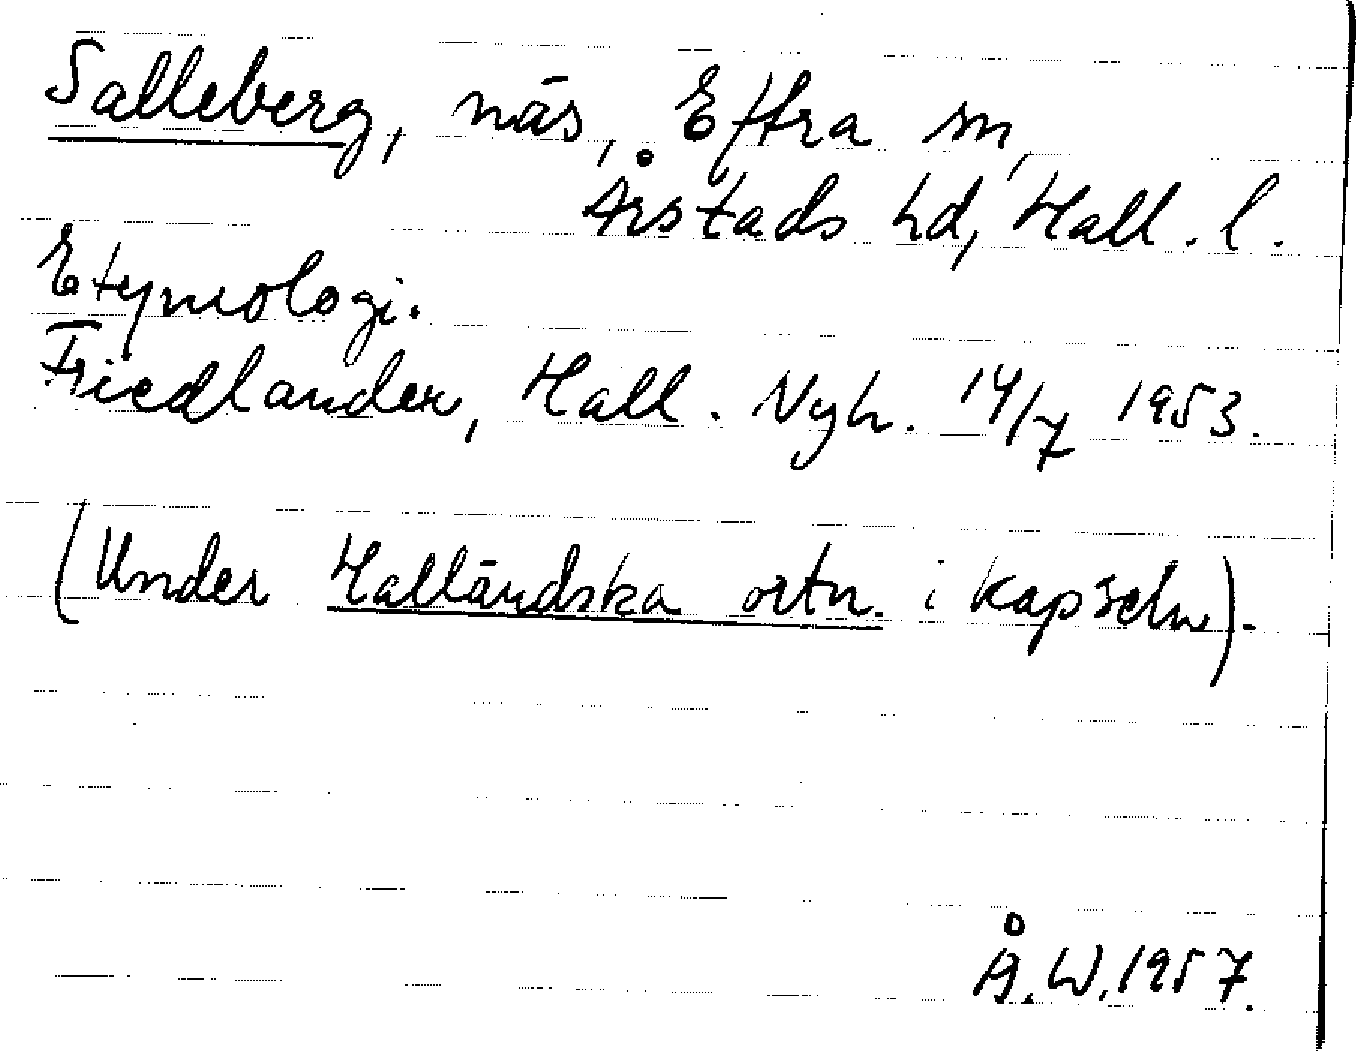 Salleberg, näs, Eftra sn,
Årstads hd, Hall. l.
Etymologi.
Friedlander, Hall. Nyh. 14/7 1953.
(Under Halländska ortn. i kapseln).
Å.W. 1957.